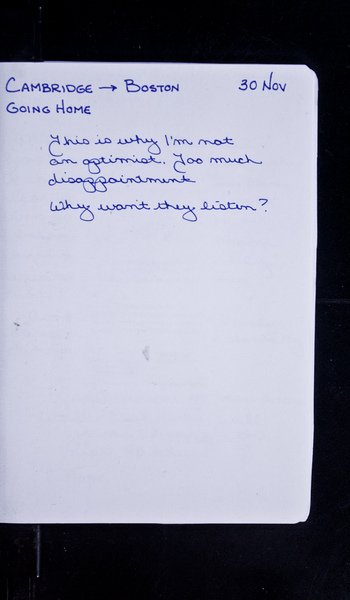 CAMBRIDGE → BOSTON 30 NOV
GOING HOME
This is why I'm not
an optimist. Too much
disappointment
Why won't they listen?